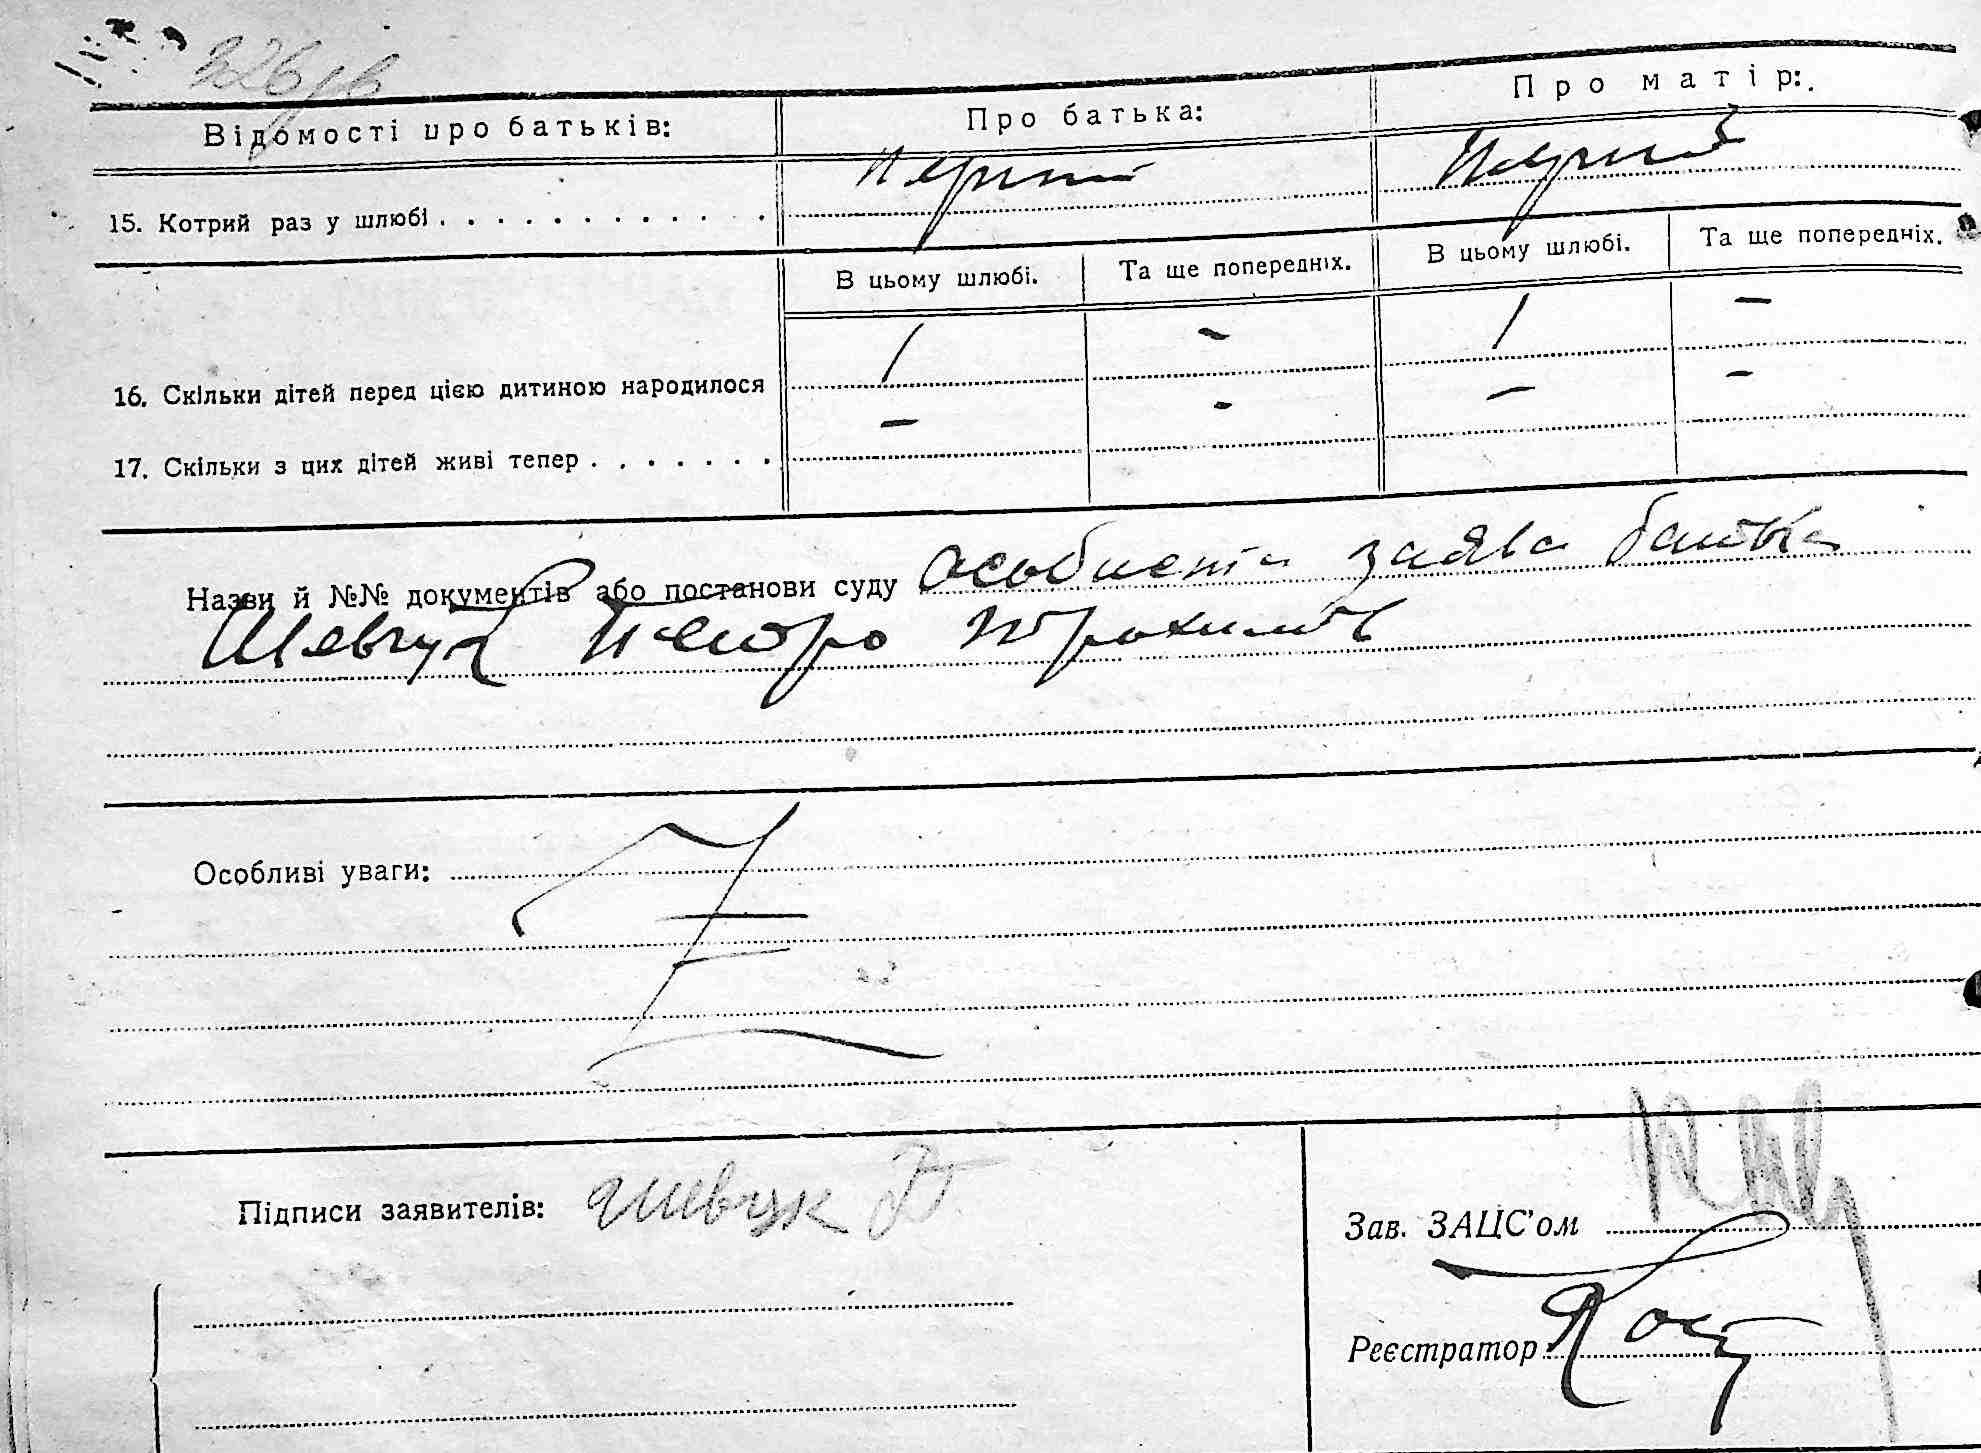 Відомості про батьків: Про батька: Про матір:
15. Котрий раз у шлюбі . . . . . . . . . . . . Перший Перший
В цьому шлюбі. Та ще попередніх. В цьому шлюбі. Та ще попередніх.
16. Скільки дітей перед цією дитиною народилося 1 - 1 -
17. Скільки з цих дітей живі тепер . . . . . . . - - - -
Назви й №№ документів або постанови суду особиста заява батька
Шевчук Петро Трохимов
Особливі уваги:
Підписи заявителів: Шевчук П
Зав. ЗАЦС'ом
Реєстратор